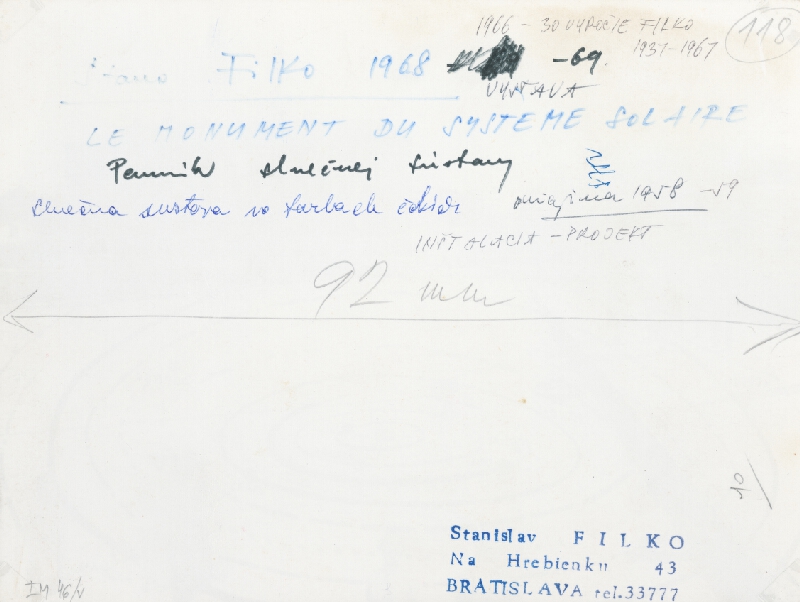 1966 - 30 VÝROČIE FILKO
1937-1967
118
Stano Filko 1968 -69.
VÝSTAVA
LE MONUMENT DU SYSTEME SOLAIRE
Pamník slnečnej sústavy
slnečná sustava vo farbach čakier 1958-59
INŠTALACIA - PROJEKT
92 mm
10/
Stanislav FILKO
Na Hrebienku 43
BRATISLAVA tel.33777
IM 46/4